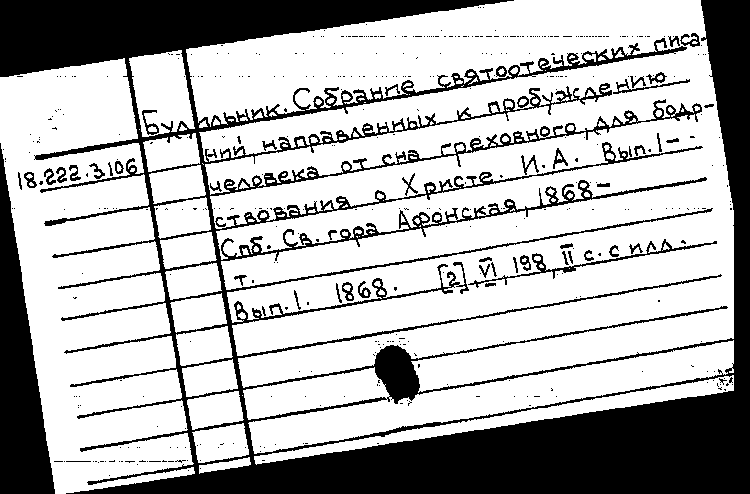 Будильник. Собрание святоотеческих писа-
ний, направленных к пробуждению
18.222.3.106
человека от сна греховного, для бодр-
ствования о Христе. И.А. Вып.1-
Спб., Св. гора Афонская, 1868-
т.
Вып.1. 1868. [2], VI, 198, II с. с илл.